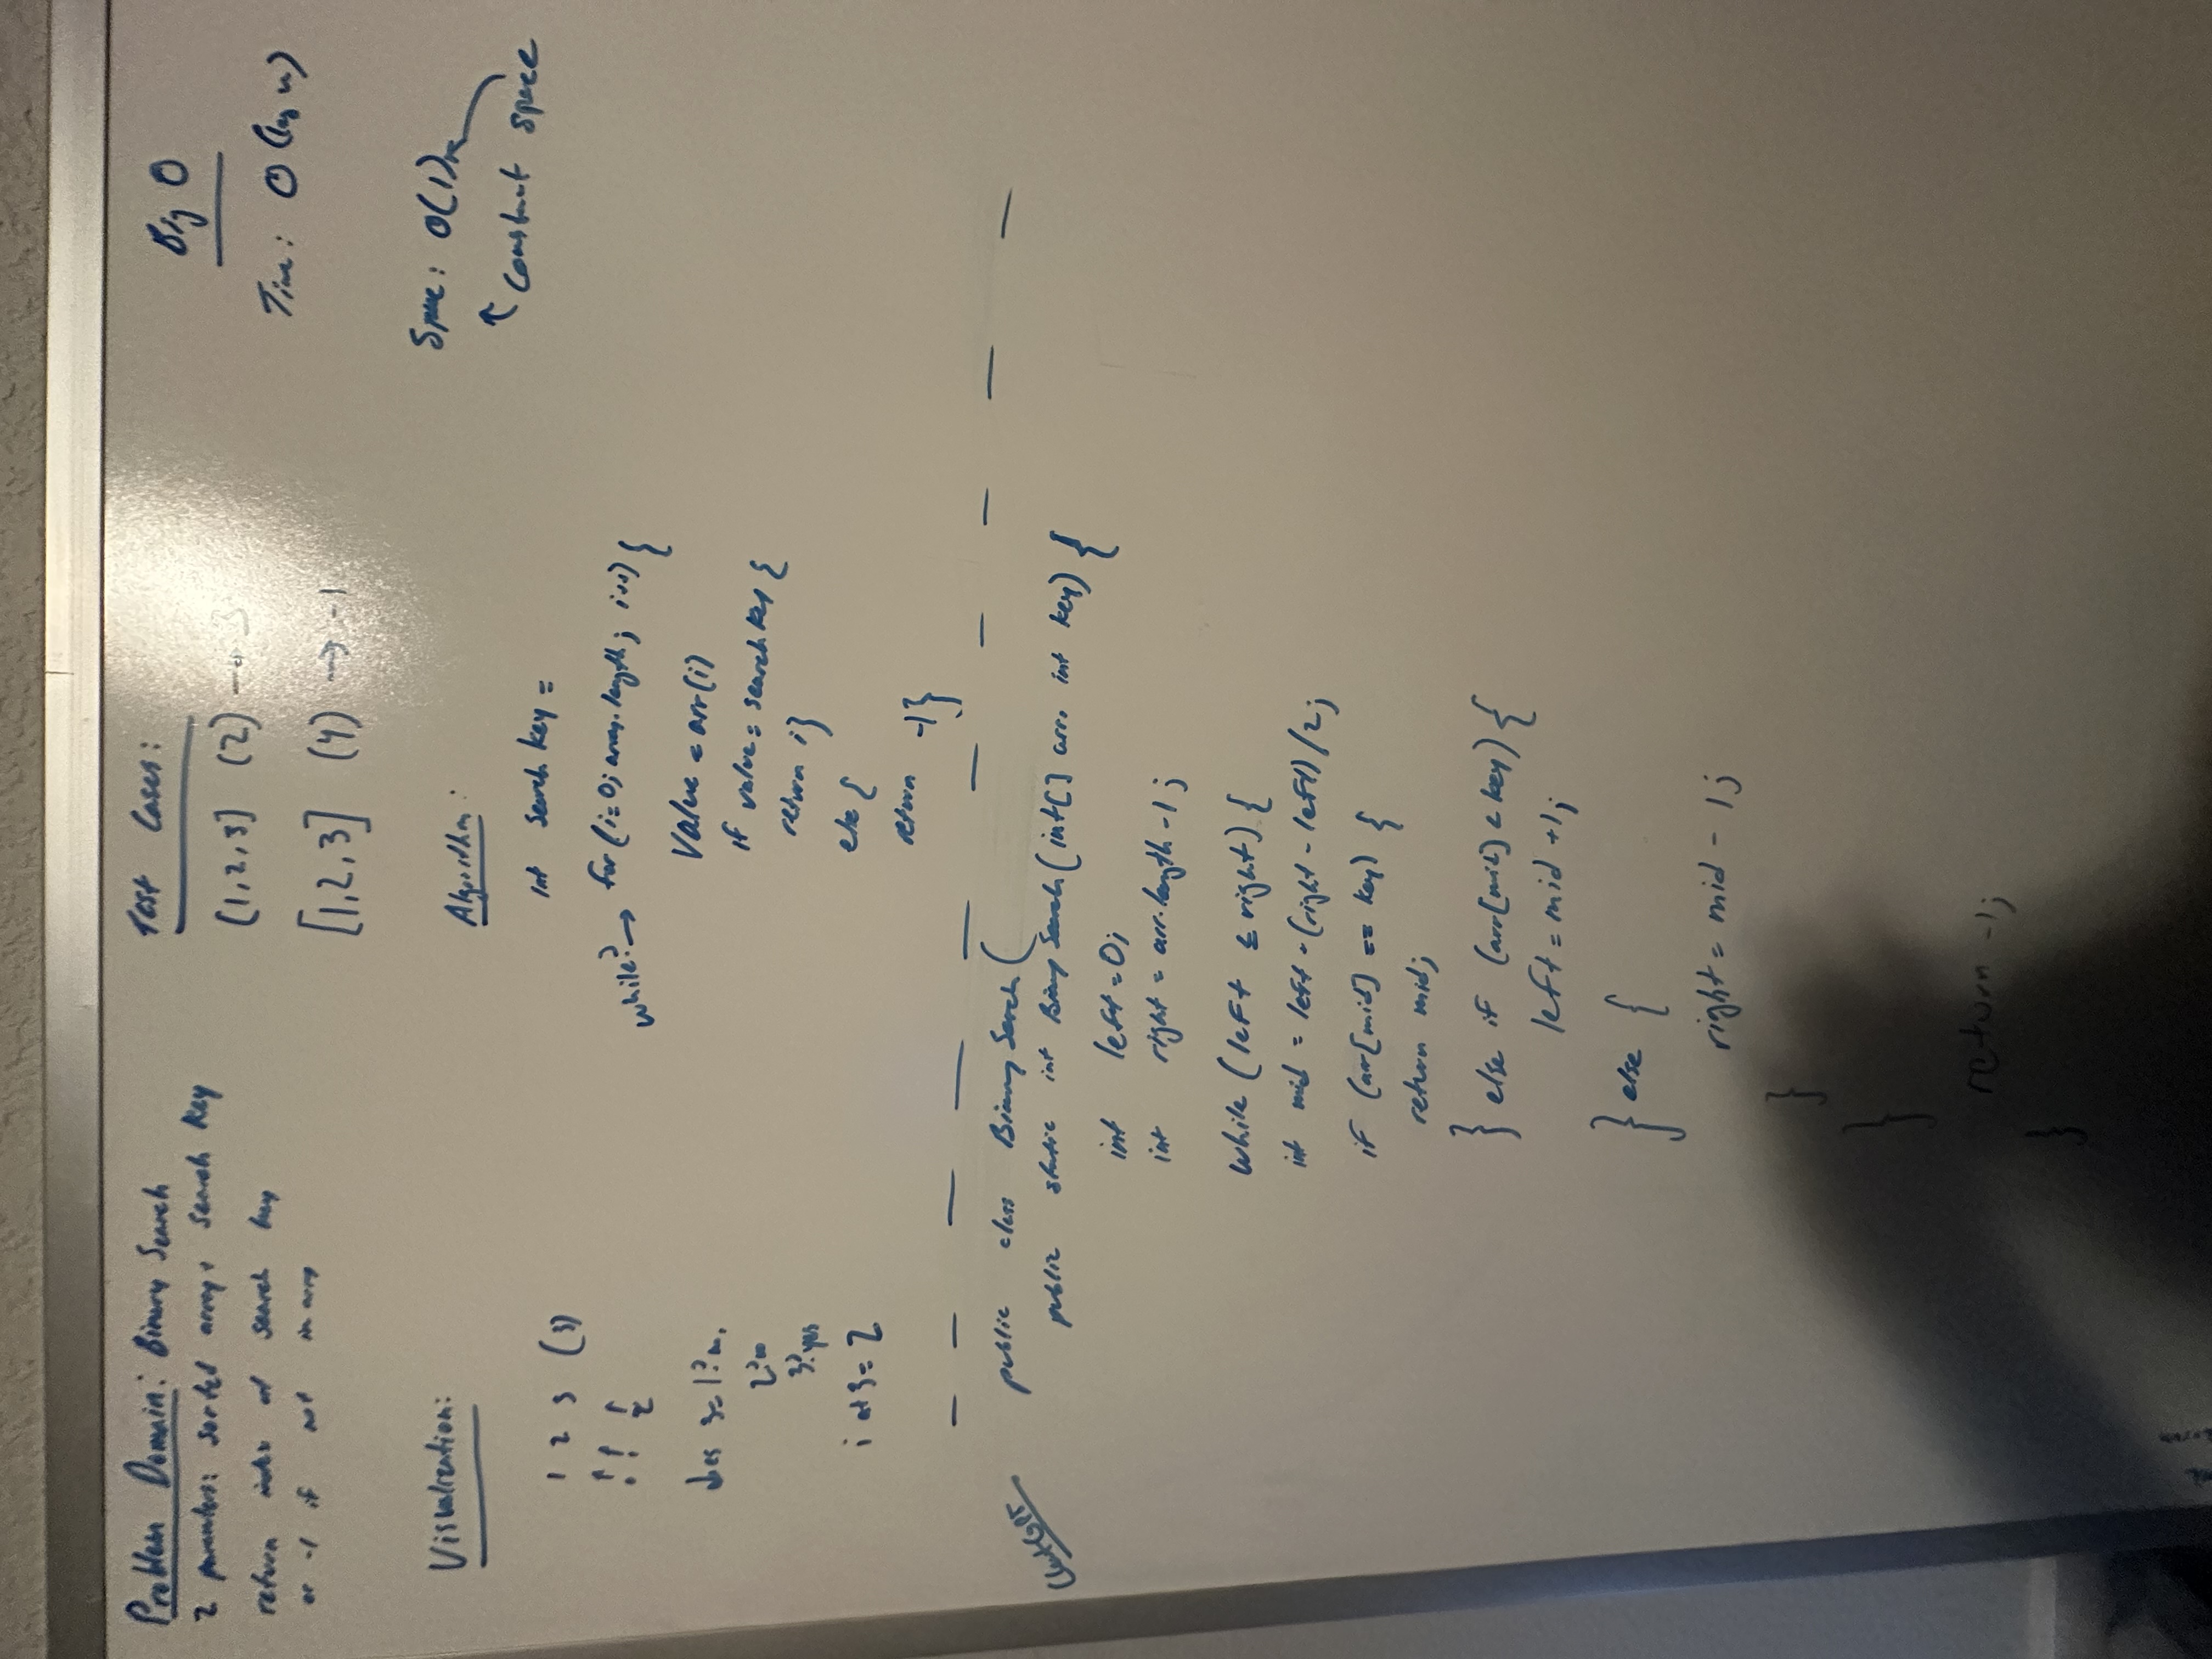 Problem Domain: Binary Search
2 parameters: sorted array + search key
return index of search key
or -1 if not in array
Test Cases:
[1,2,3] (2) → 3
[1,2,3] (4) → -1
Big O
Time: O(log n)
Space: O(1)
Constant space
Visualization:
1 2 3 (3)
0 1 2
does 3=1? no.
2? no
3? yes
i at 3 = 2
Algorithm:
int search key =
while? → for (i=0; array.length; i++) {
Value = arr(i)
if value = search key {
return i}
else {
return -1}
ChatGPT
public class Binary Serch (
public static int Binary Search (int[] arr, int key) {
int left = 0;
int right = arr.length -1;
while (left ≤ right) {
int mid = left + (right - left) /2;
if (arr[mid] == key) {
return mid;
} else if (arr[mid] < key) {
left = mid +1;
} else {
right = mid - 1;
}
}
return -1;
}